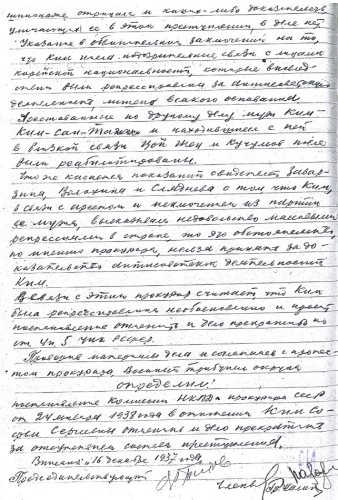 шпионаже отрицала и каких-либо доказательств
уличающих ее в этом преступлении в деле нет
Указание в обвинительном заключении на то,
что Ким имела подозрительные связи с лицами
корейской национальности, которые
были репрессированы за антисоветскую
деятельность, всякого основания.
Арестованные по другому делу муж Ким -
Ким-Сан- и находившиеся с ней
в близкой связи Цой Шен и Кучумов после
были реабилитированы.
Что же касается показаний свидетелей
Волохина и Сляднева о том что Ким,
в связи с арестом и исключением из партии
ее мужа, высказывала недовольство массовыми
репрессиями в стране, то это обстоятельство,
по мнению прокурора, нельзя признать за до-
казательство антисоветской деятельности
Ким.
В связи с этим прокурор считает, что Ким
была репрессирована необоснованно и просит
постановление отменить и дело прекратить по
ст. 4 п. 5 УПК РСФСР.
Проверив материалы дела и соглашаясь с протес-
том прокурора, Военный трибунал округа
определил:
постановление Комиссии НКВД и прокурора СССР
от 24 января 1938 года в отношении Ким Со-
фьи Сергеевны отменить и дело прекратить
за отсутствием состава преступления.
16 декабря 1957 года.
Председательствующий
Члены